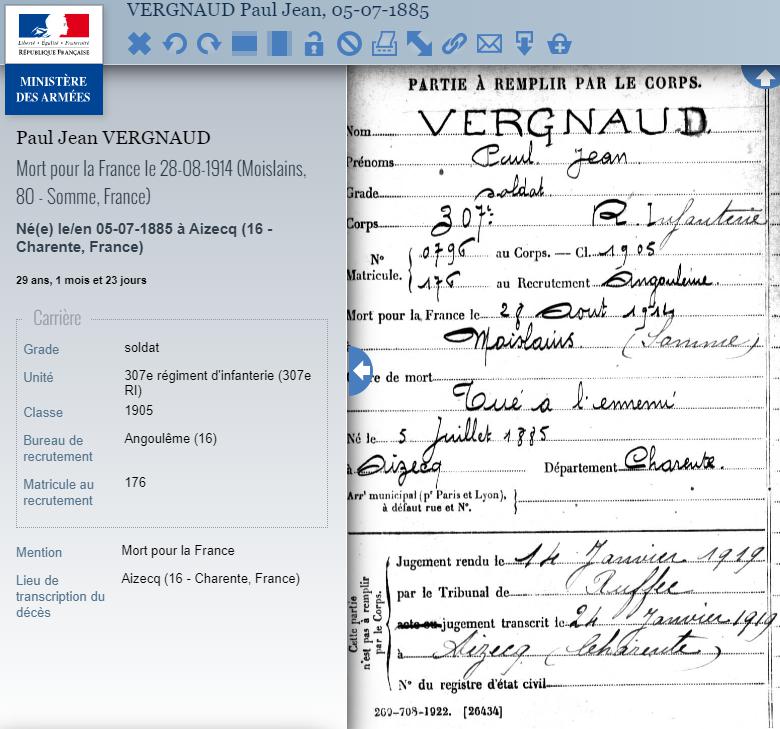 VERGNAUD Paul Jean, 05-07-1885
Liberté • Égalité • Fraternité
RÉPUBLIQUE FRANÇAISE
MINISTÈRE
DES ARMÉES
Paul Jean VERGNAUD
Mort pour la France le 28-08-1914 (Moislains,
80 - Somme, France)
Né(e) le/en 05-07-1885 à Aizecq (16 -
Charente, France)
29 ans, 1 mois et 23 jours
Carrière
Grade soldat
Unité 307e régiment d'infanterie (307e
RI)
Classe 1905
Bureau de
recrutement Angoulême (16)
Matricule au
recrutement 176
Mention Mort pour la France
Lieu de
transcription du
décès Aizecq (16 - Charente, France)
PARTIE À REMPLIR PAR LE CORPS.
Nom VERGNAUD.
Prénoms Paul Jean
Grade soldat
Corps 307e R. Infanterie
N° Matricule. 0796 au Corps. — Cl. 1905
176 au Recrutement Angoulême.
Mort pour la France le 28 Aout 1914
à Moislains (Somme)
re de mort
Tué a l'ennemi
Né le 5 Juillet 1885
à Aizecq Département Charente.
Arrt municipal (pr Paris et Lyon),
à défaut rue et N°.
Cette partie
n'est pas à remplir
par le Corps.
Jugement rendu le 14 Janvier 1919
par le Tribunal de Ruffec
acte ou jugement transcrit le 24 Janvier 1919
à Aizecq (Charente)
N° du registre d'état civil
269-708-1922. [26434]